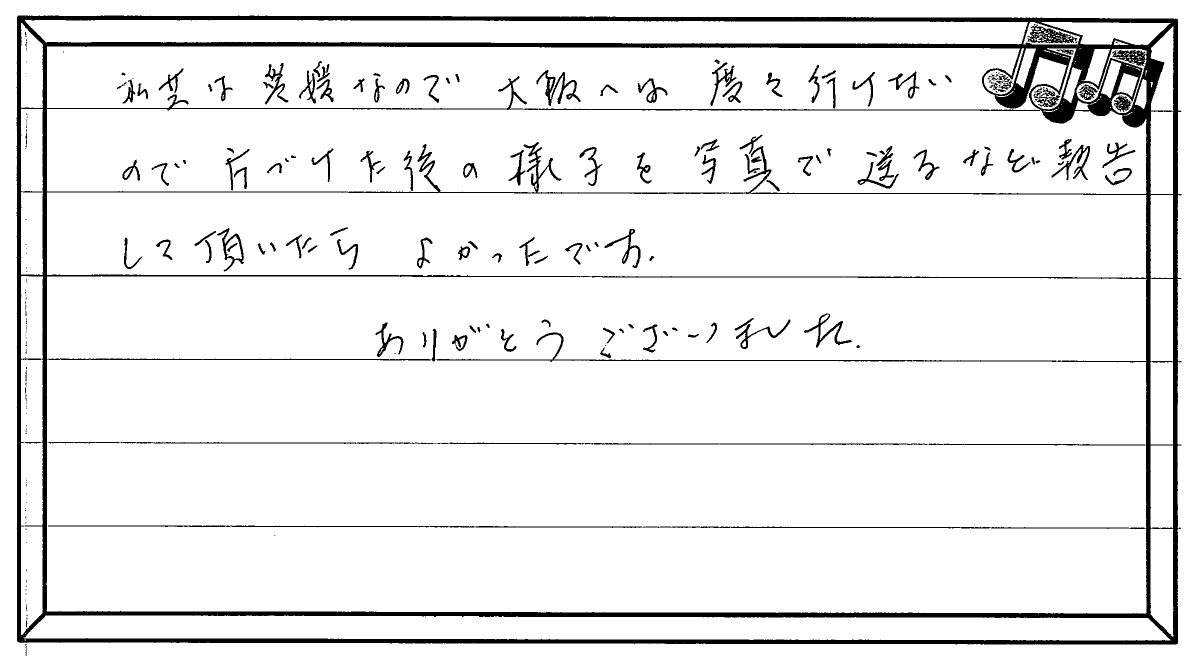 私共は愛媛なので 大阪へは 度々行けない
ので 片づけた後の様子を 写真で 送るなど報告
して頂いたら よかったです.
ありがとう ございました.